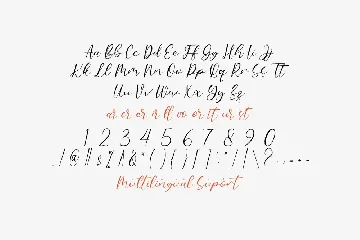 Aa Bb Cc Dd Ee Ff Gg Hh Ii Jj
Kk Ll Mm Nn Oo Pp Qq Rr Ss Tt
Uu Vv Ww Xx Yy Zz
ar er or ir ll vo or tt ur st
1 2 3 4 5 6 7 8 9 0
Multilingual Suport